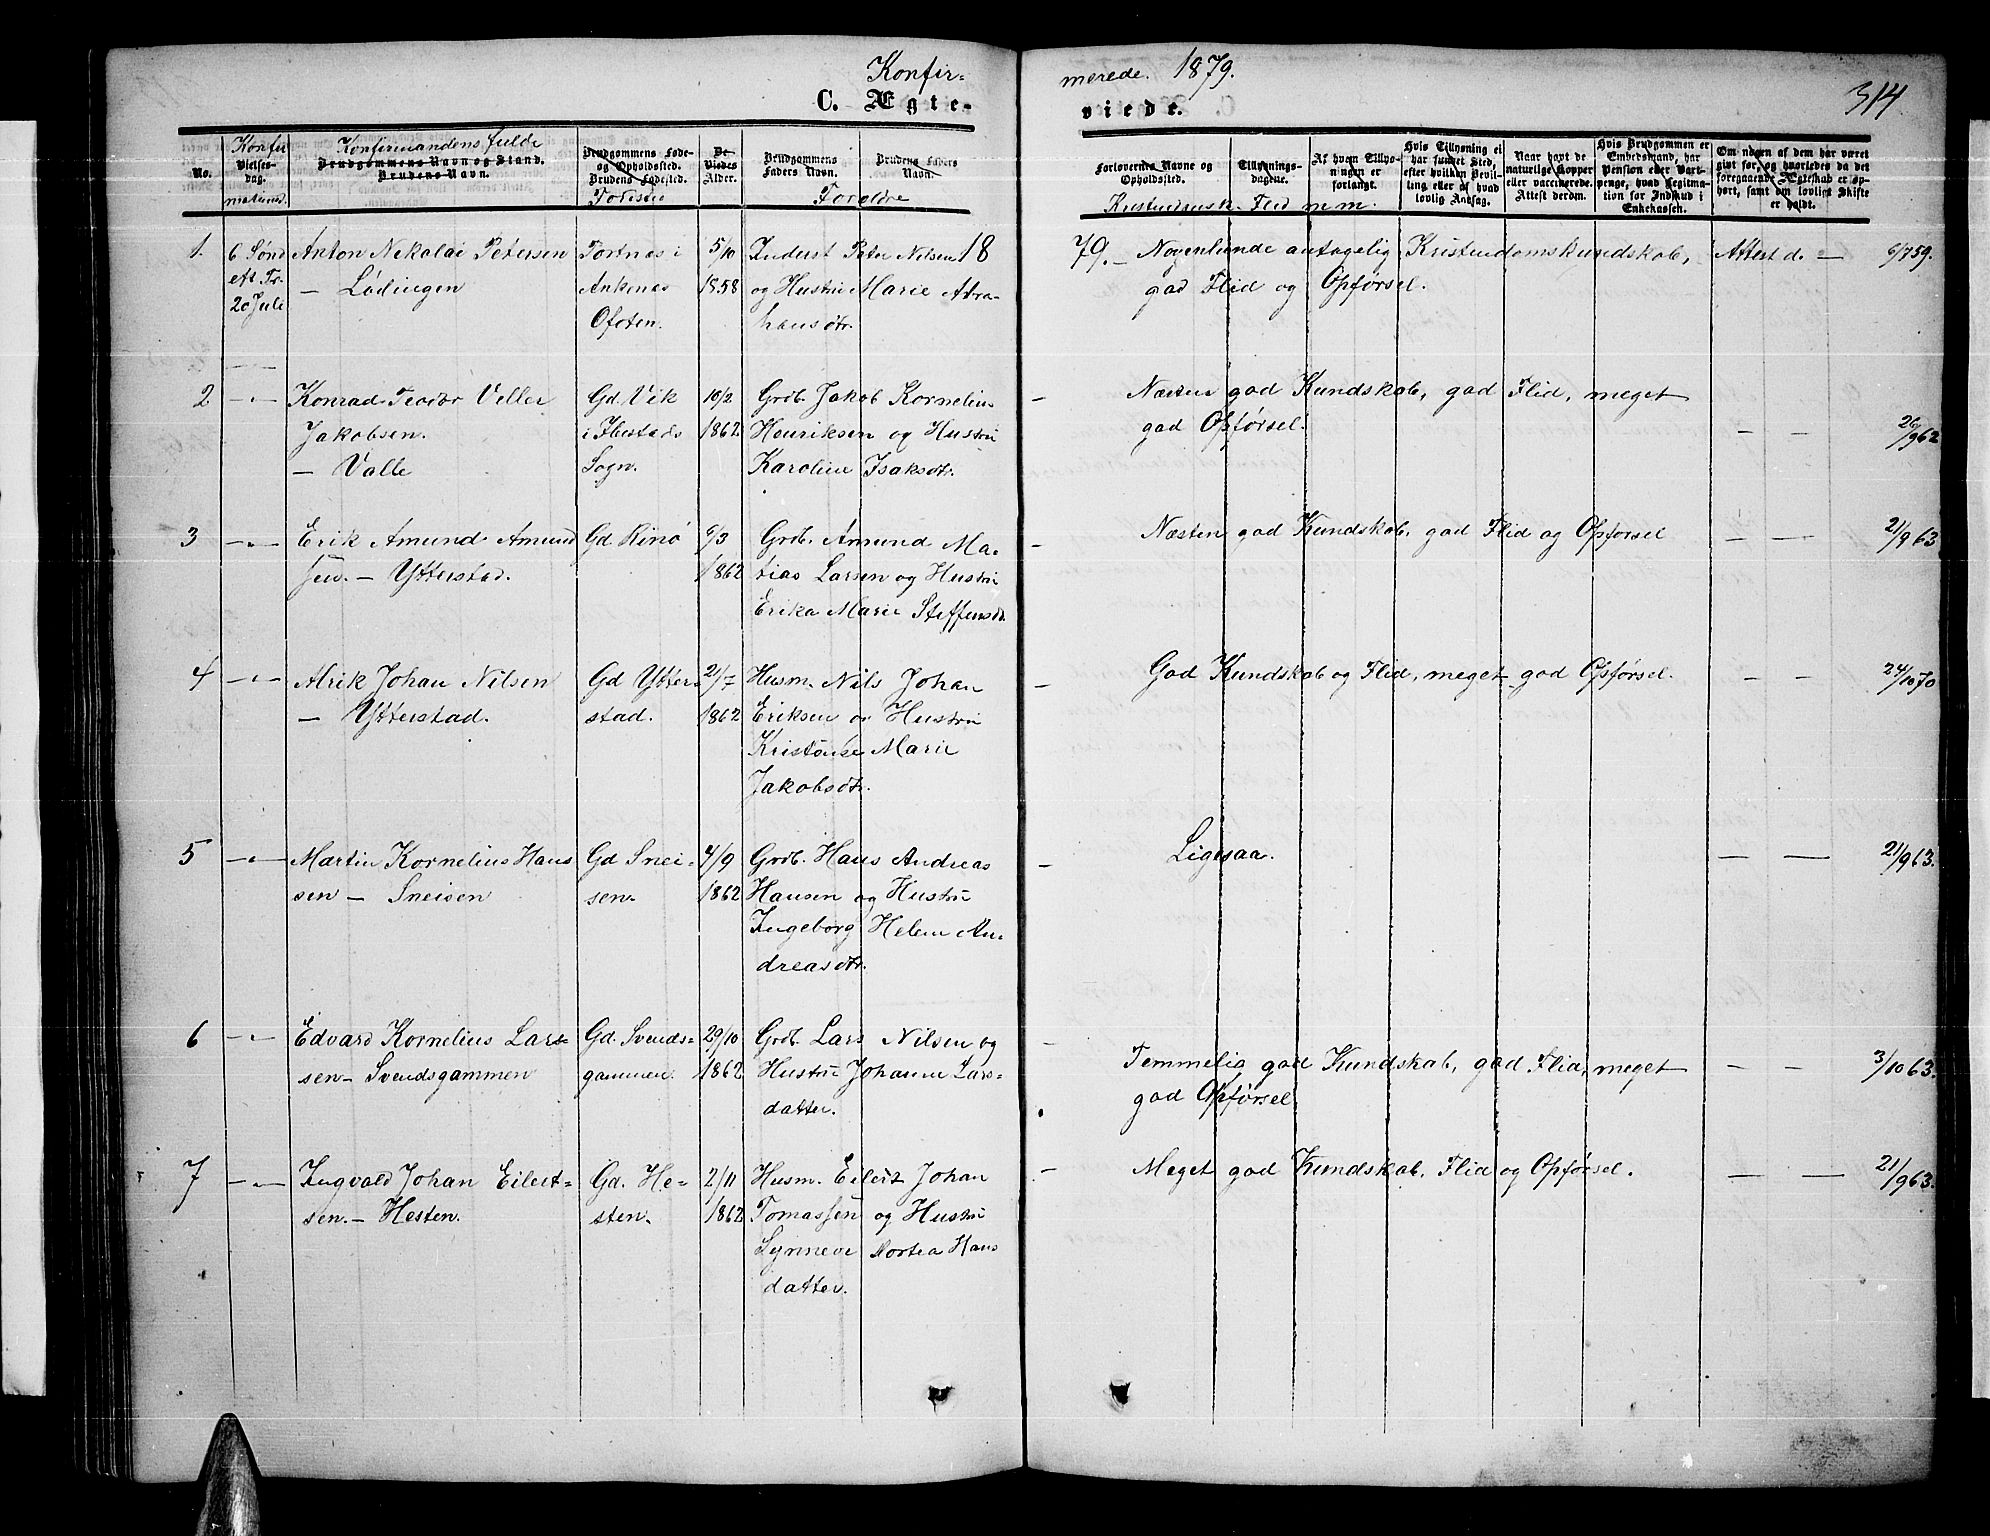 Konfir- merede. 1879.
C. Ægte- viede.
314
No.
Konfir
Vielses-
dag.
mationsd.
Konfirmandens fulde
Brudgommens Navn og Stand.
Brudens Navn.
Brudgommens Føde-
og Opholdssted.
Brudens Fødested.
Fødested
De
Viedes
Alder.
Brudgommens
Faders Navn.
Brudens Faders
Navn.
Foreldre
Forlovernes Navne og
Opholdssted.
Tillysnings-
dagene.
Af hvem Tillys-
ningen er
forlangt.
Hvis Tillysning ei
har fundet Sted,
efter hvilken Bevil-
ling eller af hvad
lovlig Aarsag.
Naar havt de
naturlige Kopper
eller vaccinerede.
Attest derom.
Hvis Brudgommen er
Embedsmand, har
Pension eller Vart-
penge, hvad Legitma-
tion for Indskud i
Enkekassen.
Om nogen af dem har været
gift før, og hvorledes da det
foregaaende Ægteskab er op-
hørt, samt om lovligt Skifte
er holdt.
Kristendomsk. Flid m m.
1.
6 Sønd
eft Tr.
20 Juli
Anton Nikolai Petersen
— Lødingen
Tortnes i
Ankenes
Ofoten.
5/10
1858
Inderst Peter Nilsen
og Hustru Marie Abra-
hamsdtr.
18
79. — Nogenlunde antagelig Kristendomskundskab,
god Flid og Opførsel.
Attest d. —
6/7 59.
2
— " —
Konrad Teodor Veller
Jakobsen.
— Valle
Gd. Vik
i Ibestads
Sogn.
10/2
1862
Grdb. Jakob Kornelius
Henriksen og Hustru
Karoline Isaksdtr.
— Næsten god Kundskab, god Flid, meget
god Opførsel.
— —
26/9 62
3
— " —
Erik Amund Amund
sen. — Ytterstad.
Gd Rinø
6/3
1862
Grdb. Amund Ma-
tias Larsen og Hustru
Erika Marie Steffensd.
— Næsten god Kundskab, god Flid og Opførsel
— —
21/9 63
4
— " —
Alrik Johan Nilsen
— Ytterstad.
Gd Ytter-
stad.
21/7
1862
Husm. Nils Johan
Eriksen og Hustru
Kristense Marie
Jakobsdtr.
— God Kundskab og Flid, meget god Opførsel.
— —
24/10 70
5
— " —
Martin Kornelius Hans
sen — Sneisen
Gd Snei-
sen.
4/9
1862
Grdb. Hans Andreas
Hansen og Hustru
Ingeborg Helene An-
dreasdtr.
— Ligesaa.
— —
21/9 63.
6
— " —
Edvard Kornelius Lars-
sen — Svendsgammen
Gd. Svends-
gammen.
29/10
1862
Grdb. Lars Nilsen og
Hustru Johanne Lars-
datter.
— Temmelig god Kundskab, god Flid, meget
god Opførsel.
3/10 63.
7
— " —
Ingvald Johan Eilert-
sen. — Hesten.
Gd. He-
sten.
2/11
1862
Husm. Eilert Johan
Tomassen og Hustru
Synneve Nortea Hans
datter.
— Meget god Kundskab, Flid og Opførsel.
— —
21/9 63.